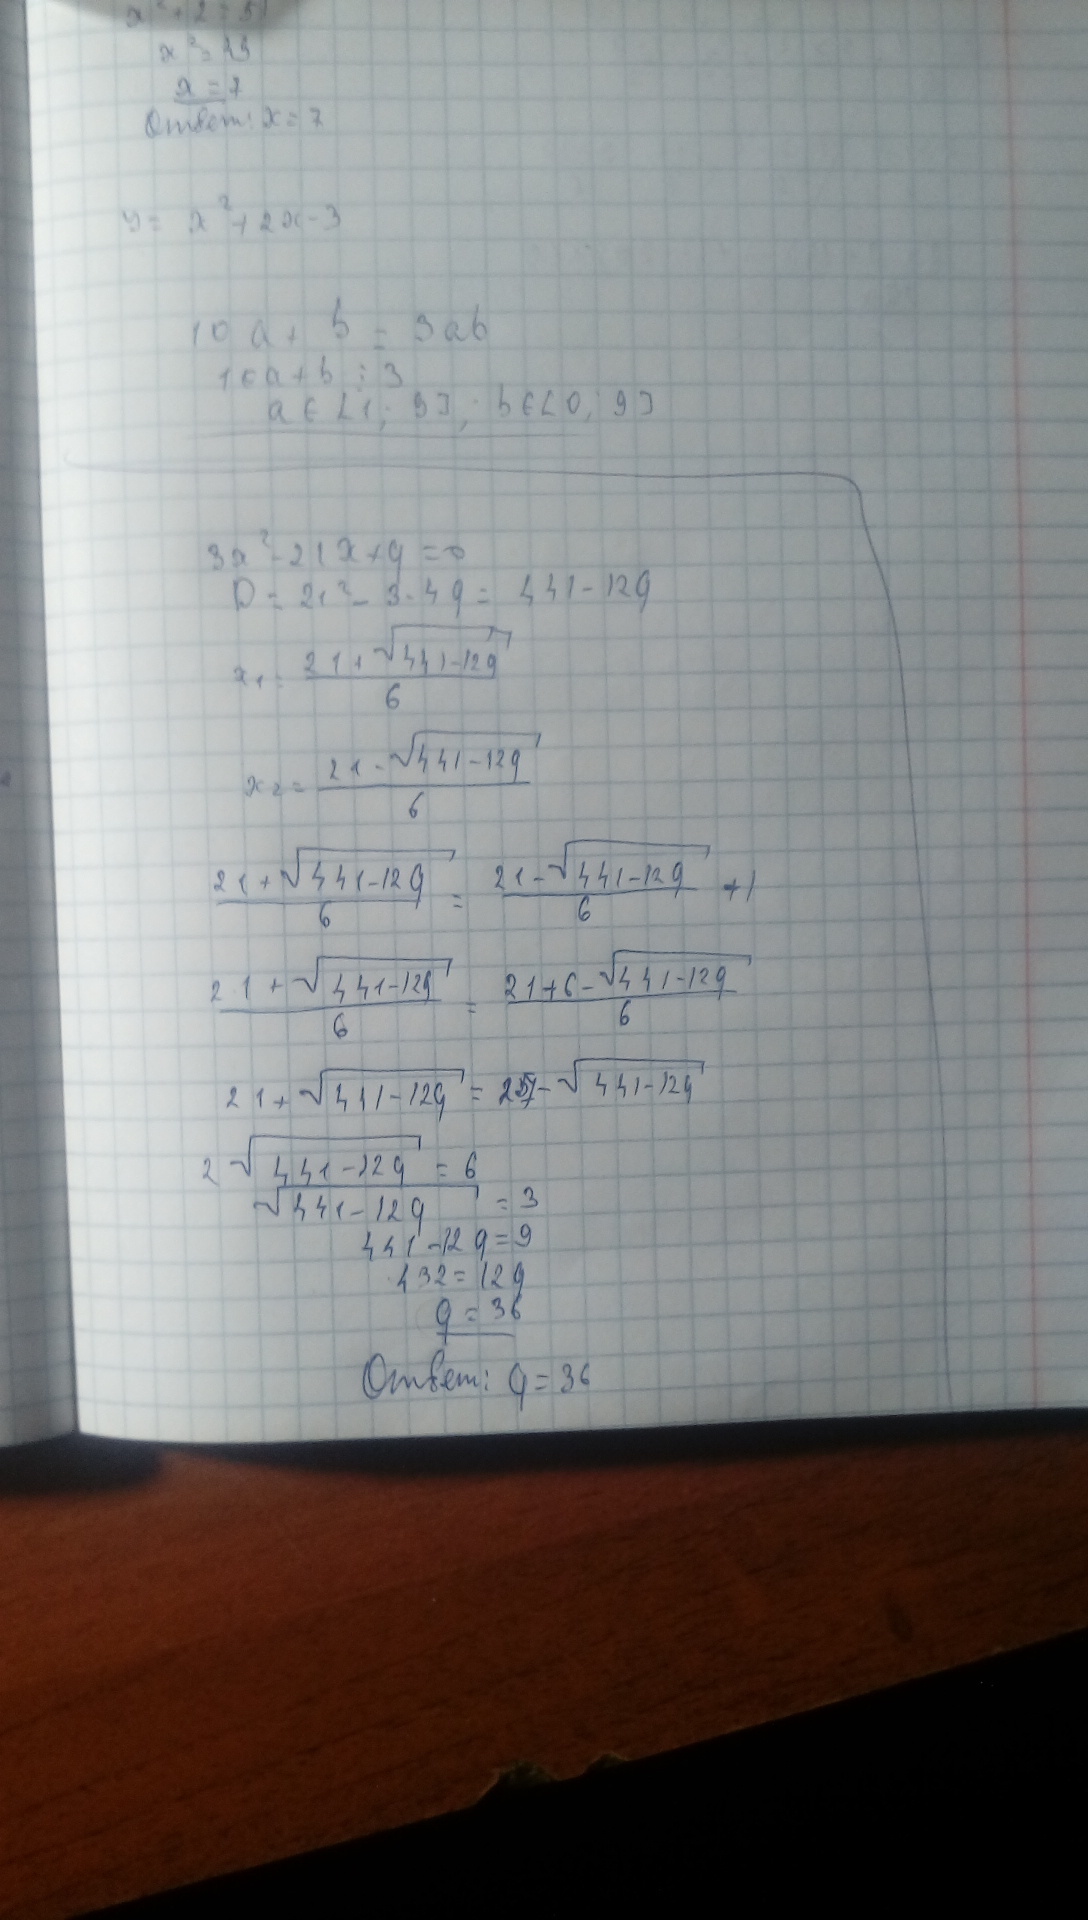 x² + 2 = 51
x² = 49
x = 7
Ответ: x = 7
y = x² + 2x - 3
10a + b = 3ab
10a + b ⋮ 3
a ∈ [1; 9], b ∈ [0; 9]
3x² - 21x + q = 0
D = 21² - 3·4q = 441 - 12q
x₁ = (21 + √(441-12q))/6
x₂ = (21 - √(441-12q))/6
(21 + √(441-12q))/6 = (21 - √(441-12q))/6 + 1
(21 + √(441-12q))/6 = (21 + 6 - √(441-12q))/6
21 + √(441-12q) = 27 - √(441-12q)
2√(441-12q) = 6
√(441-12q) = 3
441 - 12q = 9
432 = 12q
q = 36
Ответ: q = 36